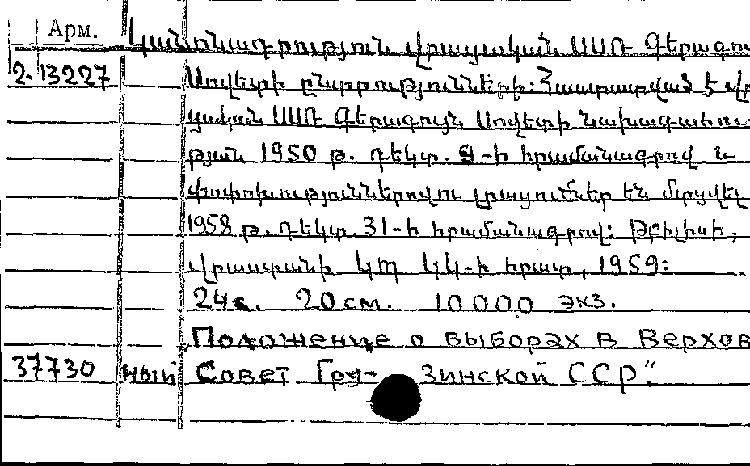 Арм.
Կանոնադրություն վրացական ՍՍՌ Գերագու
2-13227 Սովետի ընտրությունների: Հաստատված է վր
ցական ՍՍՌ Գերագույն Սովետի Նախագահու
թյան 1950 թ. դեկտ. 9-ի հրամանագրով և
փոփոխություններով ու լրացումներ են մտցվել
1958 թ. դեկտ. 31-ի հրամանագրով: Թբիլիսի,
Վրաստանի ԿՊ ԿԿ-ի հրատ, 1959:
24с. 20см. 10000 экз.
Положение о выборах в Верхов
37730 ный Совет Гру- зинской ССР".